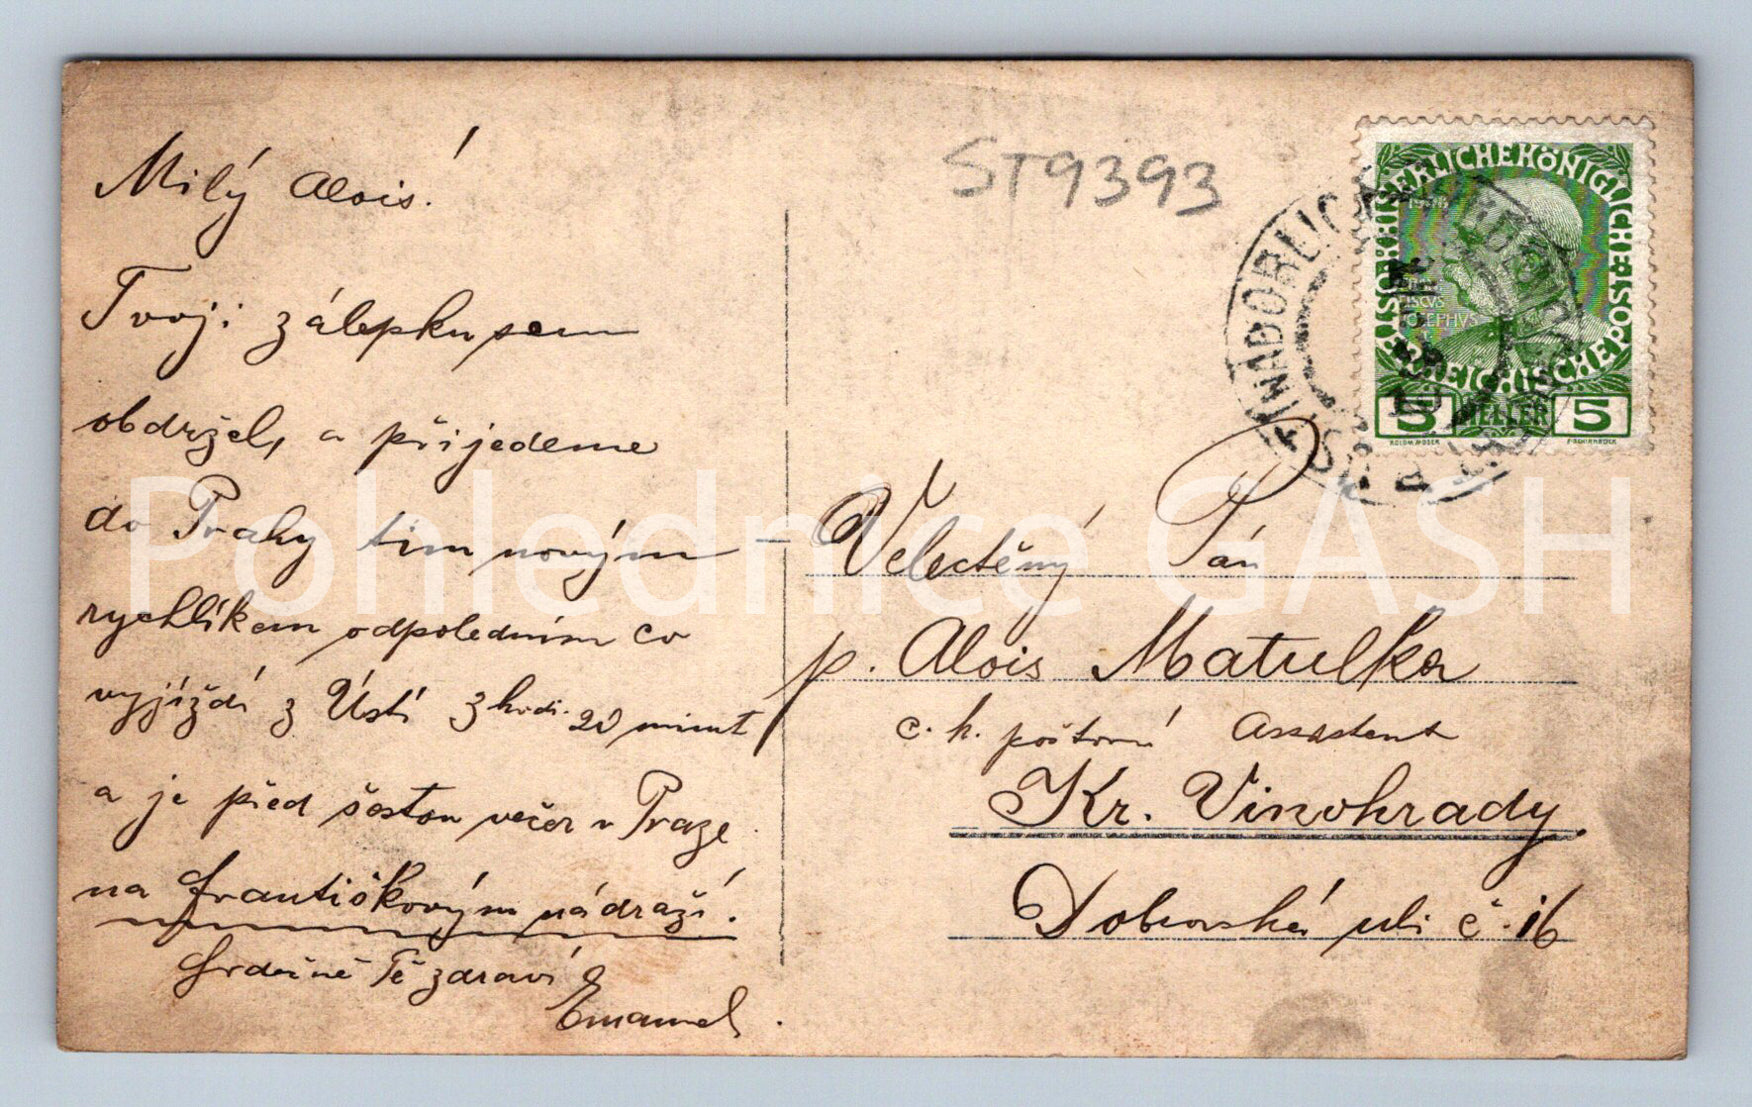 ST9393
Milý Alois!
Tvoji zálepku sem
obdržel, a přijedeme
do Prahy tim novým
rychlíkem odpoledním co
vyjíždí z Ústí 3 hodi. 20 minut
a je před šestou večer v Praze
na Františkovým nádraží.
Srdečně Tě zdraví
Emanuel.
Velectěný Pán
p. Alois Matulka
c. k. poštovní Assistent
Kr. Vinohrady
Dobrovská uli č. 16
KAISERLICHEKÖNIGLICHE ÖSTERREICHISCHE POST
FRANCISCVS
IOSEPHVS I
5 HELLER 5
KOLOM.MOSER
F.SCHIRNBÖCK
Pohlednice GASH